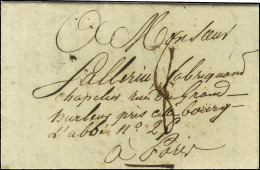 A Monsieur
Pellerin fabriquand
chapelier rue du Grand
hurleur près le bourg
L'abbé n.o 28
à Paris